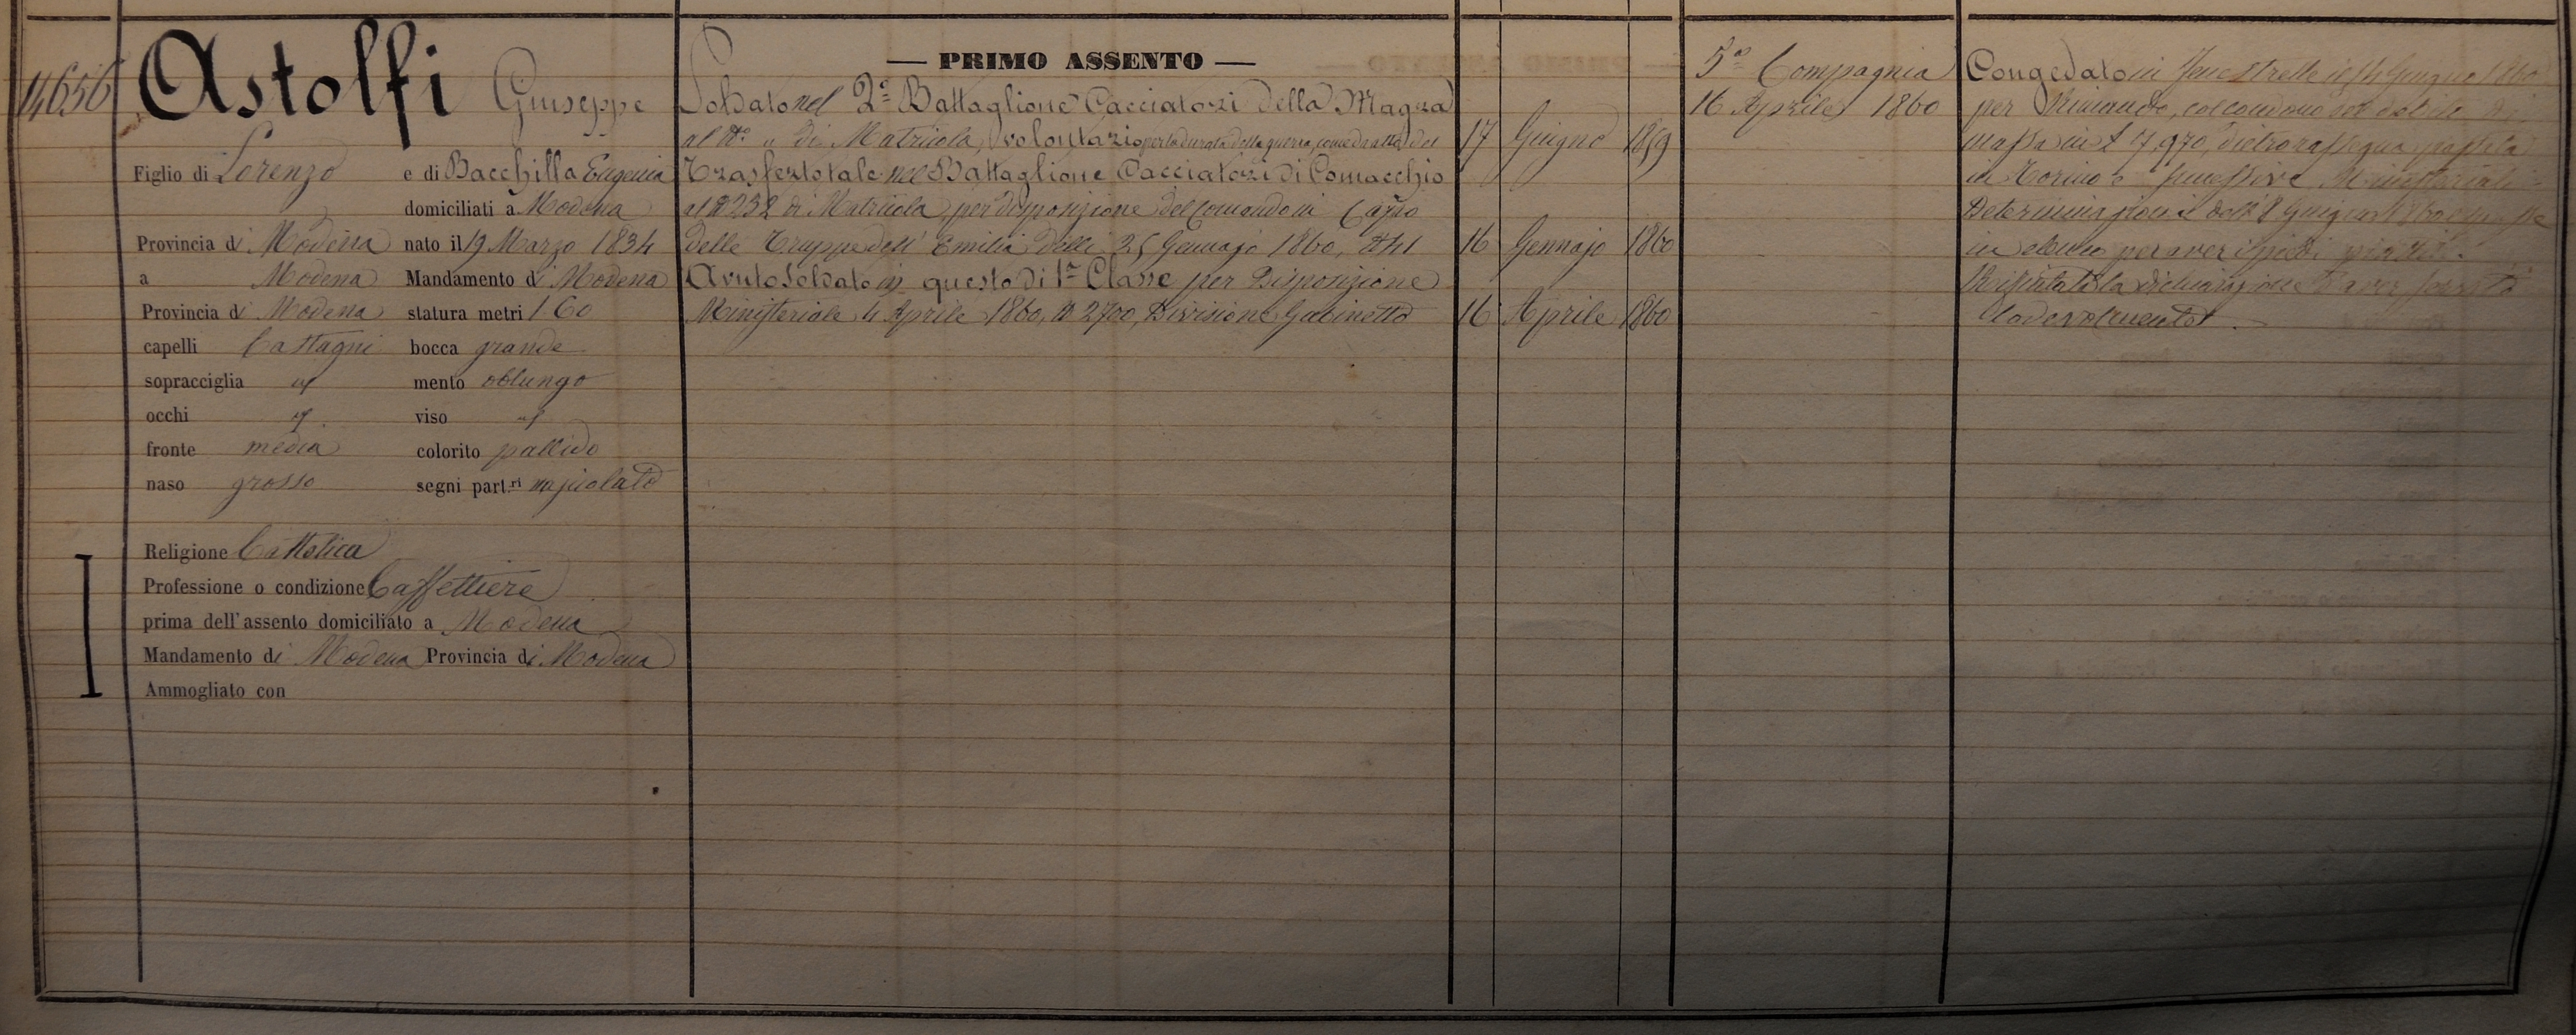 14656
Astolfi Giuseppe
Figlio di Lorenzo e di Bacchilla Eugenia
domiciliati a Modena
Provincia di Modena nato il 19 Marzo 1834
a Modena Mandamento di Modena
Provincia di Modena statura metri 1 60
capelli Castagni bocca grande
sopracciglia id mento oblungo
occhi id viso id
fronte media colorito pallido
naso grosso segni part.ri vajuolato
Religione Cattolica
Professione o condizione Caffettiere
prima dell'assento domiciliato a Modena
Mandamento di Modena Provincia di Modena
Ammogliato con
— PRIMO ASSENTO —
Soldato nel 2º Battaglione Cacciatori della Magra
al Nº " di Matricola, volontario per la durata della guerra, come da atto del 17 Giugno 1859
Trasferto tale nel Battaglione Cacciatori di Comacchio
al N 232 di Matricola, per disposizione del Comando in Capo
delle Truppe dell' Emilia delli 25 Gennajo 1860, 16 Gennajo 1860
Avuto Soldato in questo di 1ª Classe per Disposizione
Ministeriale 4 Aprile 1860, N 2700, Divisione Gabinetto 16 Aprile 1860
5ª Compagnia
16 Aprile 1860
Congedato in Fenestrelle il 14 Giugno 1860
per Rimando, col condono del debito di
massa in £ 17,970, dietro rassegna passata
in Torino e Ministeriale
Determinazione dell' 8 Giugno 1860
per aver i piedi piatti.
Rifiutata la dichiarazione d'aver servito
lodevolmente.